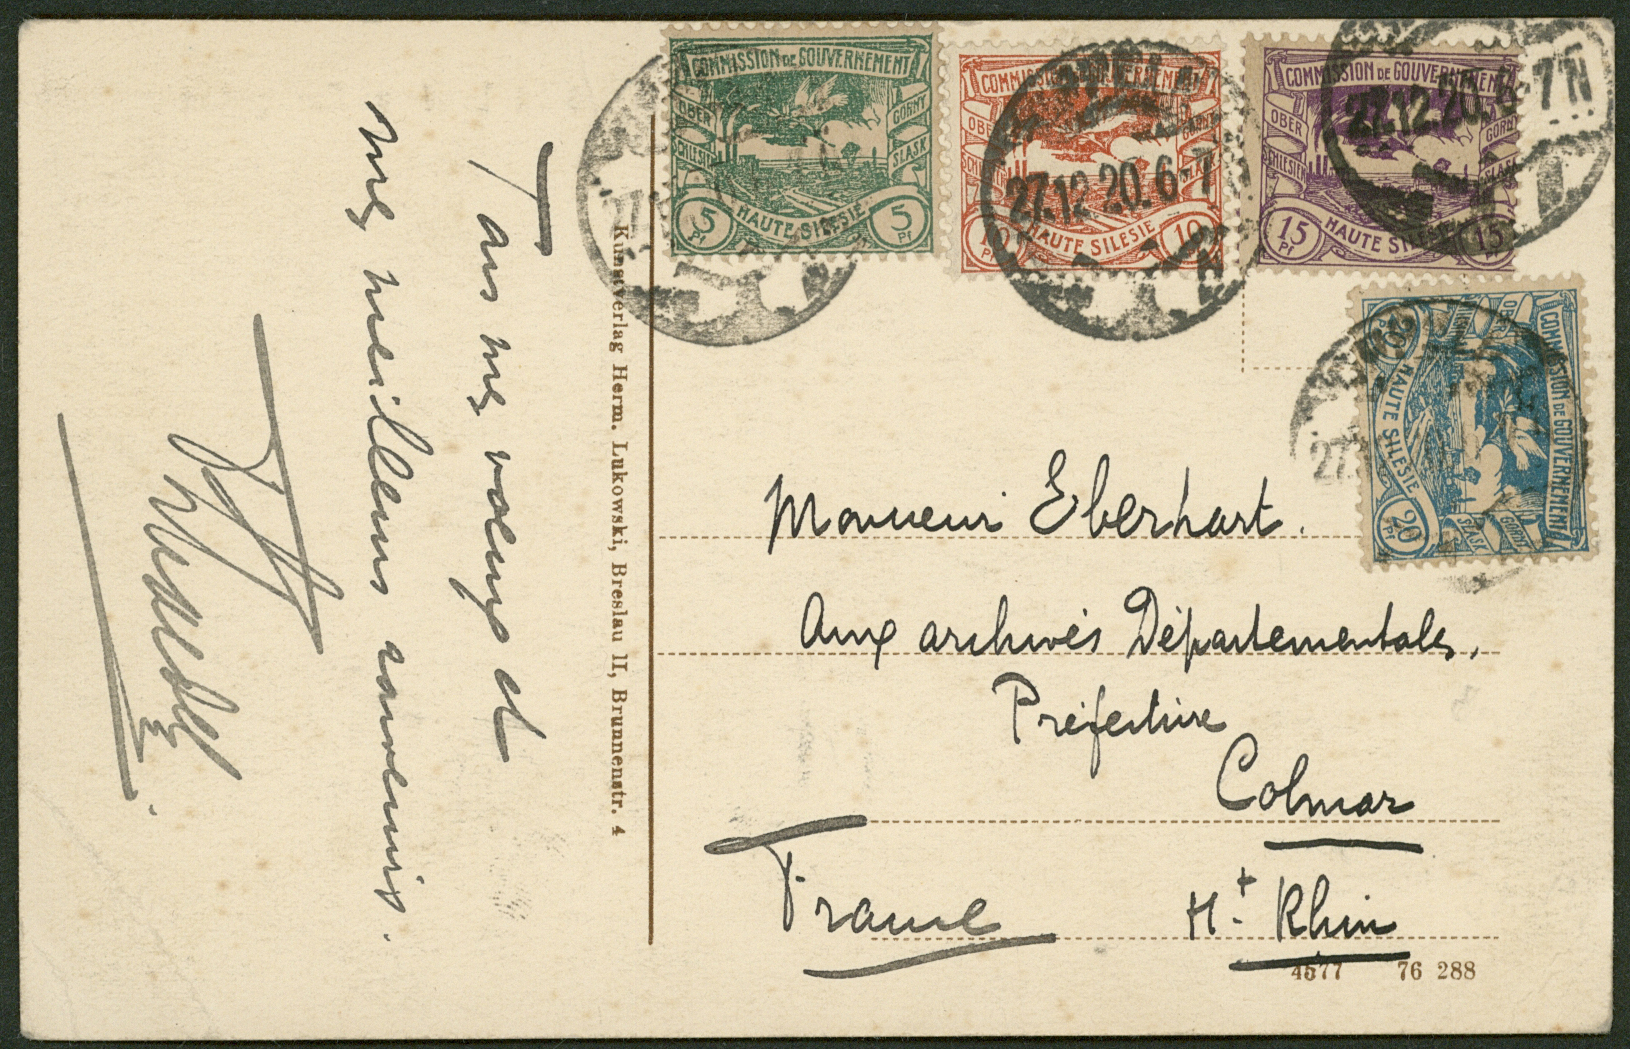 COMMISSION DE GOUVERNEMENT
OBER SCHLESIEN
GORNY SLASK
HAUTE SILESIE
5 Pf 5 Pf
COMMISSION DE GOUVERNEMENT
OBER SCHLESIEN
GORNY SLASK
HAUTE SILESIE
10 Pf 10
27.12.20. 6-7 N
COMMISSION DE GOUVERNEMENT
OBER SCHLESIEN
GORNY SLASK
HAUTE SILESIE
15 Pf 15
27.12.20. 6-7 N
COMMISSION DE GOUVERNEMENT
OBER
GORNY SLASK
HAUTE SILESIE
20 Pf 20 Pf
27
Tous mes voeux et
mes meilleurs souvenirs.
Kunstverlag Herm. Lukowski, Breslau II, Brunnenstr. 4
Monsieur Eberhart.
Aux archives Départementales,
Préfecture
Colmar
France
Ht. Rhin
4577 76 288